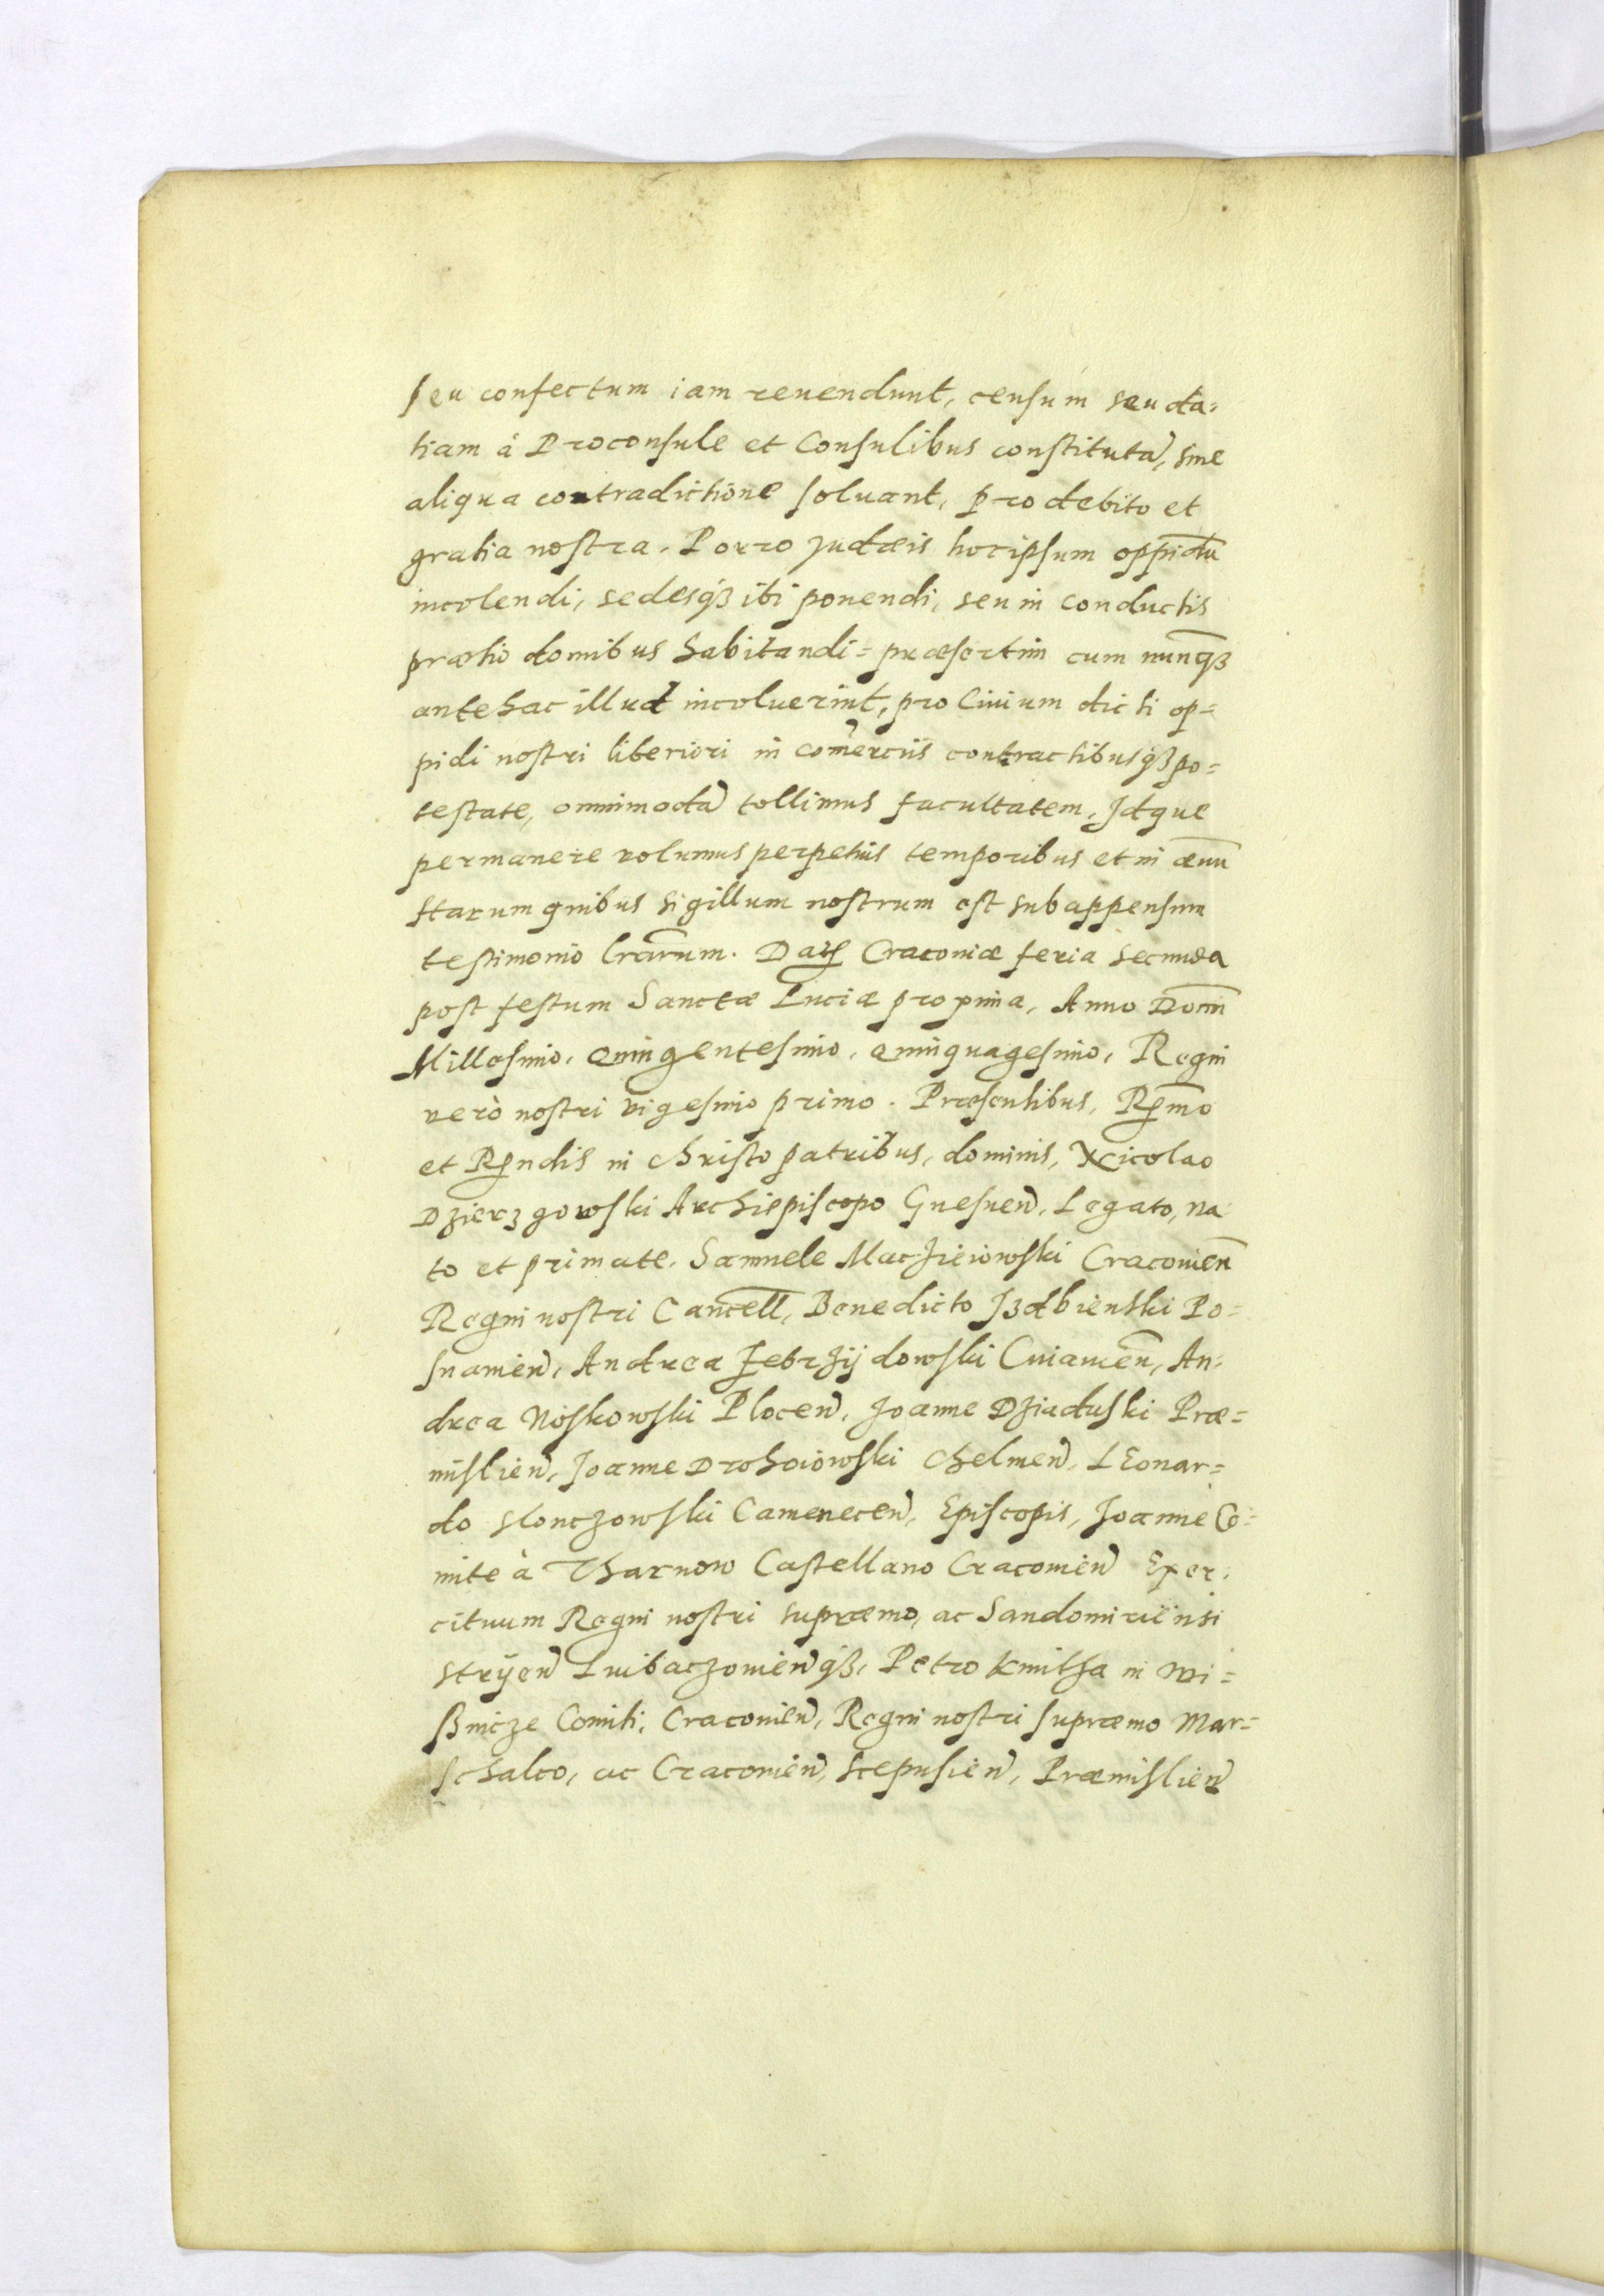 seu confectum iam revendunt, censum seu da=
tiam à Proconsule et Consulibus constitutã, sine
aliqua contradictione soluant, pro debito et
gratia nostra. Porro Judæis hoc ipsum oppidũ
incolendi, sedesq́ꝫ ibi ponendi, seu in conductis
prætio domibus habitandi= præsertim cum nunq̃ꝫ
antehac illud incoluerint, pro Ciuium dicti op=
pidi nostri liberiori in com̃erciis contractibusq́ꝫ po=
testate, omnimodã tollimus facultatem. Idque
permanere volumus perpetuis temporibus et in æuũ
Harum quibus sigillum nostrum est subappensum
testimonio lr̃arum. Datꝭ Cracouiæ feria secunda
post festum Sanctæ Luciæ proxima, Anno Domĩ
Millesimo, Quingentesimo, quinquagesimo, Regni
verò nostri vigesimo primo. Præsentibus, Rṽmo
et Rṽndis in Christo patribus, dominis, Nicolao
Dzierzgowski Archiepiscopo Gnesneñ, Legato, na
to et primate. Samuele Maczieiowski Cracouieñ
Regni nostri Cancell̃, Benedicto Izdbienski Po=
snanieñ, Andrea Zebrzijdowski Cuiauieñ, An=
drea Noskowski Ploceñ, Joanne Dziaduski Præ=
mislieñ, Joanne Drohoiowski Chelmeñ, LEonar=
do Slonczowski Cameneceñ, Episcopis, Joanne Co=
mite à Tharnow Castellano Cracouieñ Exer=
cituum Regni nostri supræmo, ac Sandomiriensi
Strÿeñ Luibaczouieñq́ꝫ, Petro Kmitha in Wi=
ßnicze Comiti, Cracouieñ, Regni nostri supræmo Mar=
schalco, ac Cracouieñ, Scepusieñ, Præmislieñ